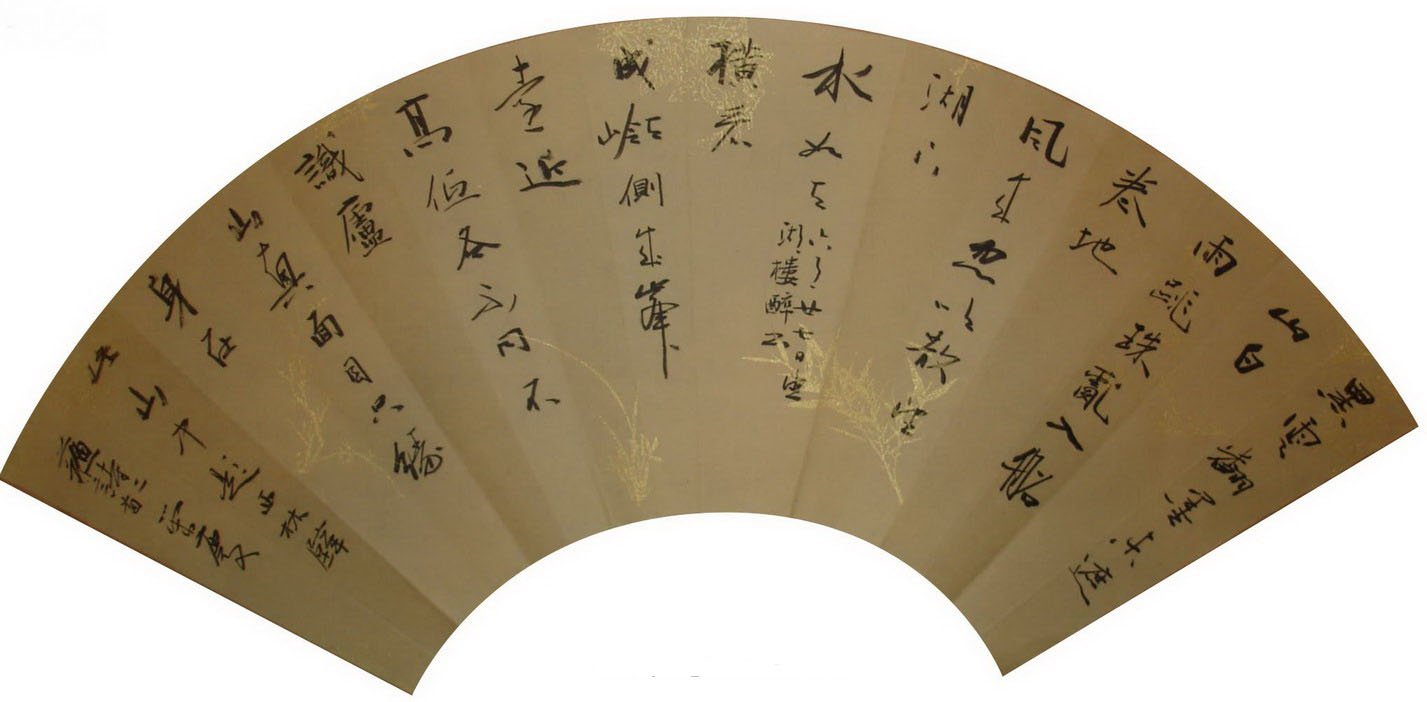 黑雲翻墨未遮
山白
雨跳珠亂入船
卷地
風來忽吹散望
湖下
水如天
六月廿七日望
湖樓醉書
橫看
成嶺側成峯
遠近
高低各不同不
識廬
山真面目只緣
身在
此山中 題西林壁
詩二首